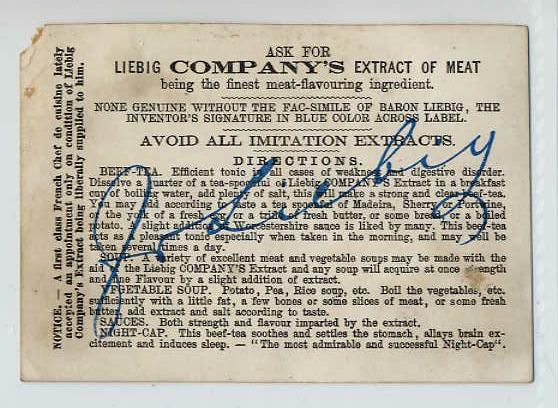 ASK FOR
LIEBIG COMPANY'S EXTRACT OF MEAT
being the finest meat-flavouring ingredient.
NONE GENUINE WITHOUT THE FAC-SIMILE OF BARON LIEBIG, THE
INVENTOR'S SIGNATURE IN BLUE COLOR ACROSS LABEL.
AVOID ALL IMITATION EXTRACTS.
DIRECTIONS.
BEEF-TEA. Efficient tonic in all cases of weakness and digestive disorder.
Dissolve a quarter of a tea-spoonful of Liebig COMPANY'S Extract in a breakfast
cup of boiling water, add plenty of salt, this will make a strong and clear beef-tea.
You may add according to taste a tea spoonful of Madeira, Sherry or Portwine,
or the yolk of a fresh egg, or a trifle of fresh butter, or some bread, or a boiled
potato. A slight addition of Worcestershire sauce is liked by many. This beef-tea
acts as a pleasant tonic especially when taken in the morning, and may well be
taken several times a day.
SOUP. A variety of excellent meat and vegetable soups may be made with the
aid of the Liebig COMPANY'S Extract and any soup will acquire at once strength
and fine Flavour by a slight addition of extract.
VEGETABLE SOUP. Potato, Pea, Rice soup, etc. Boil the vegetables, etc.
sufficiently with a little fat, a few bones or some slices of meat, or some fresh
butter, add extract and salt according to taste.
SAUCES. Both strength and flavour imparted by the extract.
NIGHT-CAP. This beef-tea soothes and settles the stomach, allays brain ex-
citement and induces sleep. — "The most admirable and successful Night-Cap".
NOTICE. — A first class French Chef de cuisine lately
accepted an appointment only on condition of Liebig
Company's Extract being liberally supplied to him.
J. Liebig